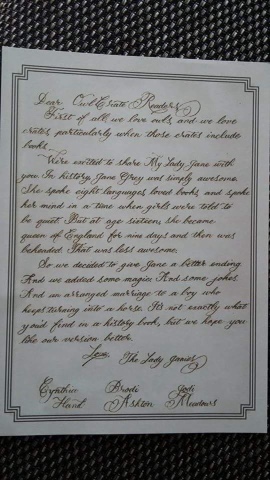 Dear OwlCrate Readers,
First of all, we love owls, and we love
crates, particularly when those crates include
books.
We're excited to share My Lady Jane with
you. In history, Jane Grey was simply awesome.
She spoke eight languages, loved books and spoke
her mind in a time when girls were told to
be quiet. But at age sixteen, she became
queen of England for nine days and then was
beheaded. That was less awesome.
So we decided to give Jane a better ending.
And we added some magic. And some jokes.
And an arranged marriage to a boy who
keeps turning into a horse. It's not exactly what
you'd find in a history book, but we hope you
like our version better.
Love, The Lady Janies
Cynthia Brodi Jodi
Hand Ashton Meadows